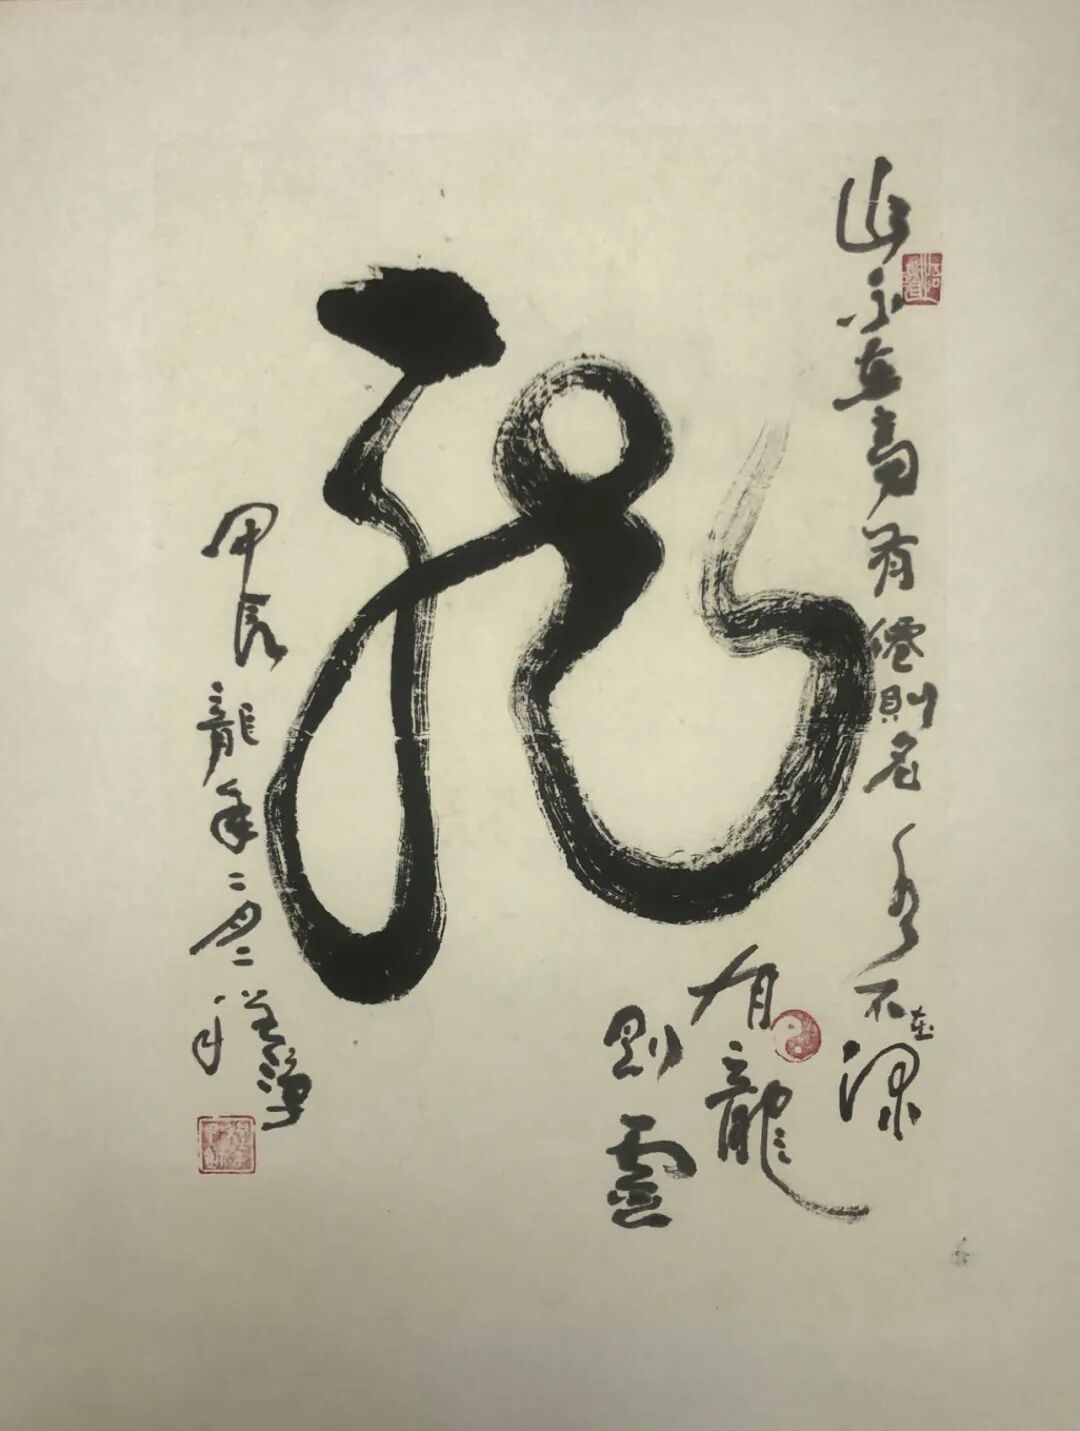 山不在高有僊則名水不在深
有龍
則靈
龍
甲辰龍年二月二